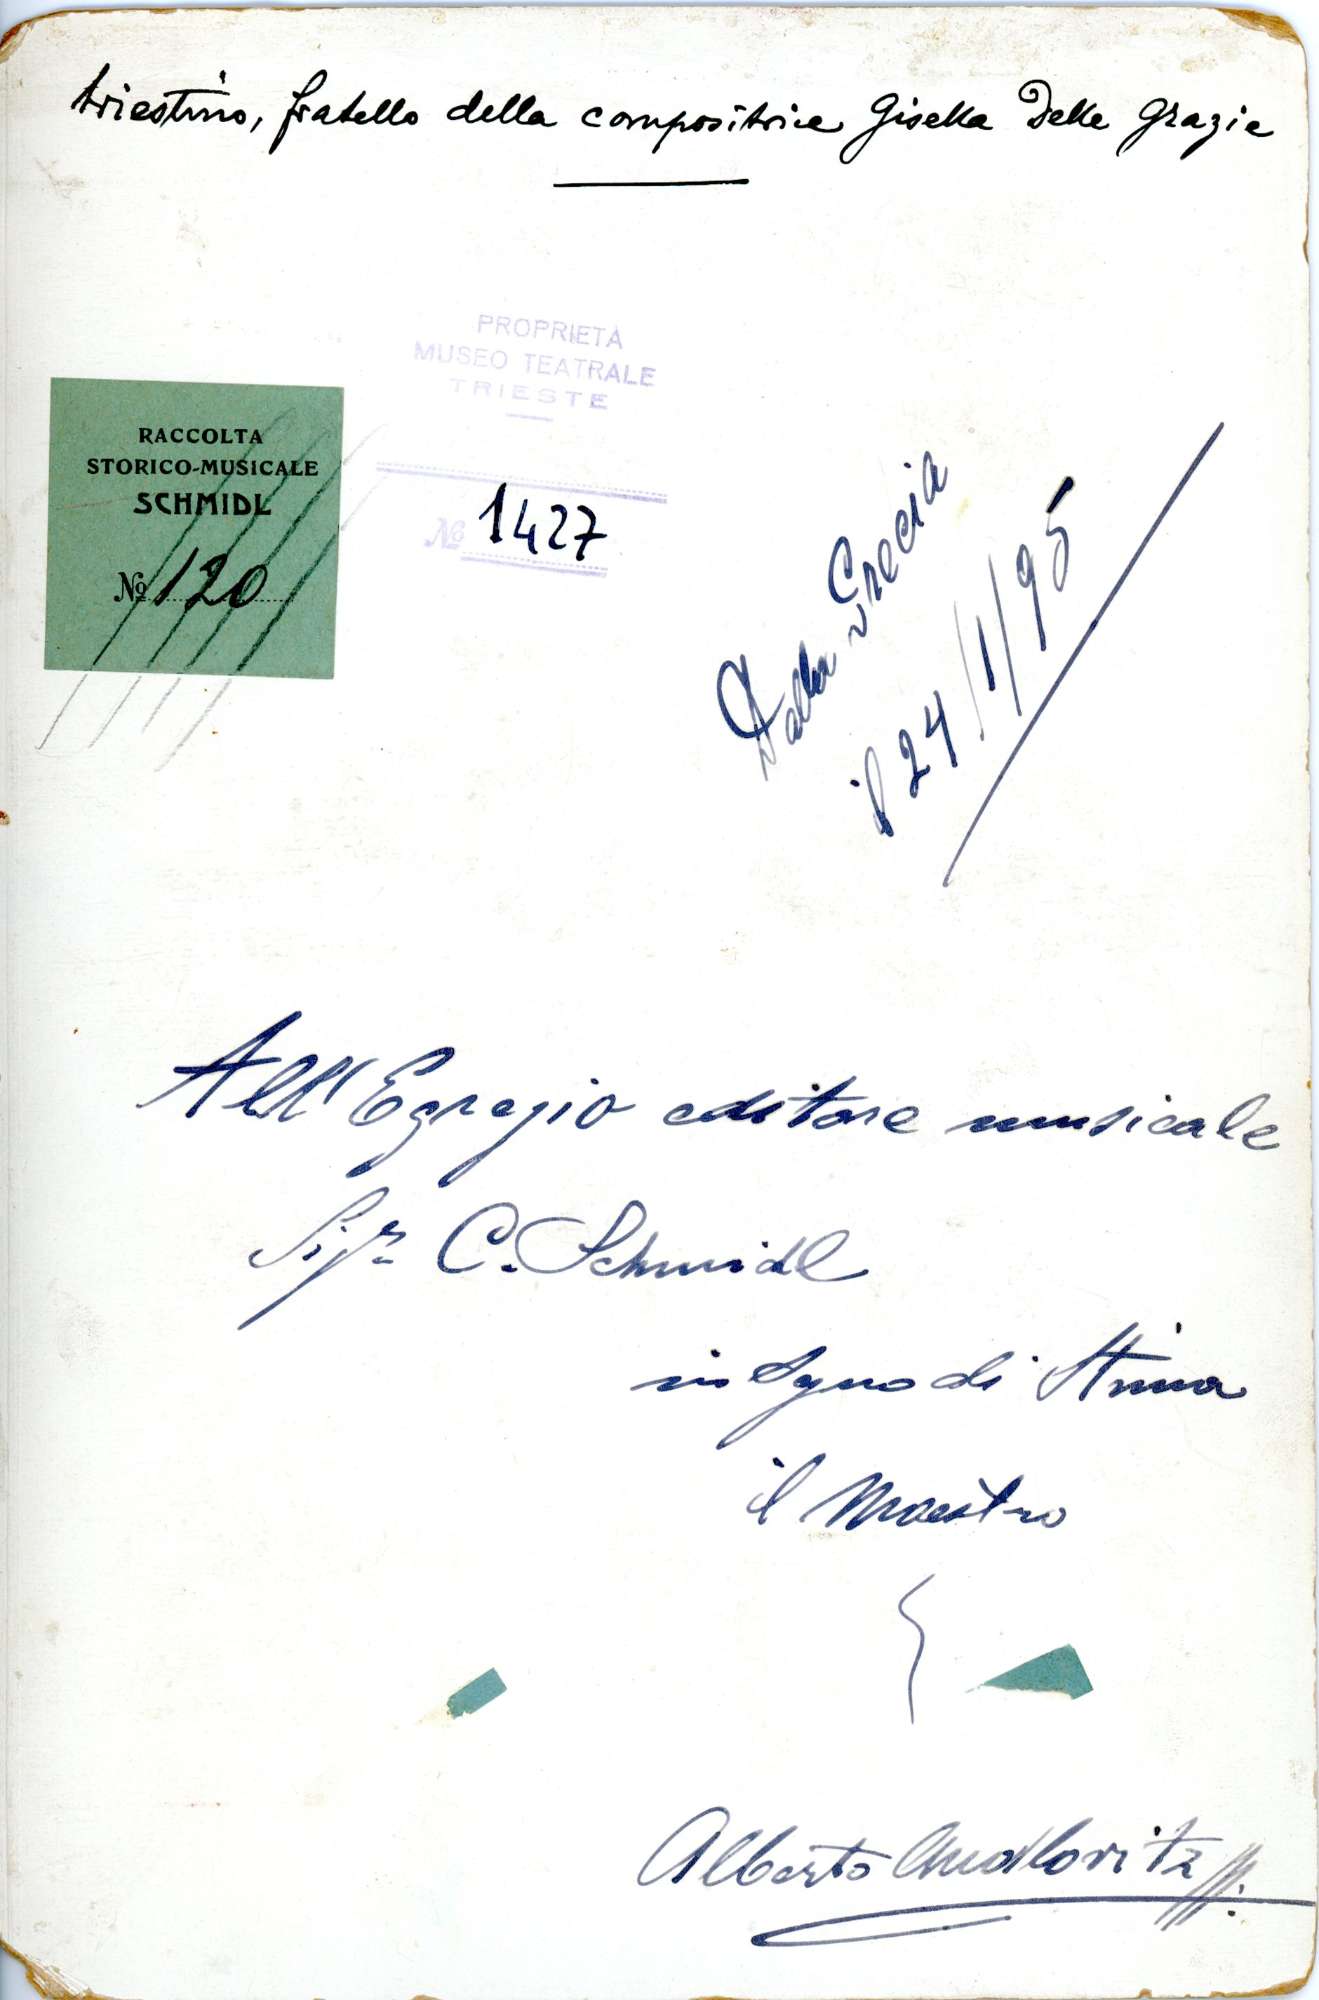 triestino, fratello della compositrice Gisella Delle Grazie
PROPRIETÀ
MUSEO TEATRALE
TRIESTE
RACCOLTA
STORICO-MUSICALE
SCHMIDL
No 120
No 1427
Dalla Grecia
il 24/1/95
All'Egregio editore musicale
Sigr. C. Schmidl
in segno di Stima
il Maestro
Alberto